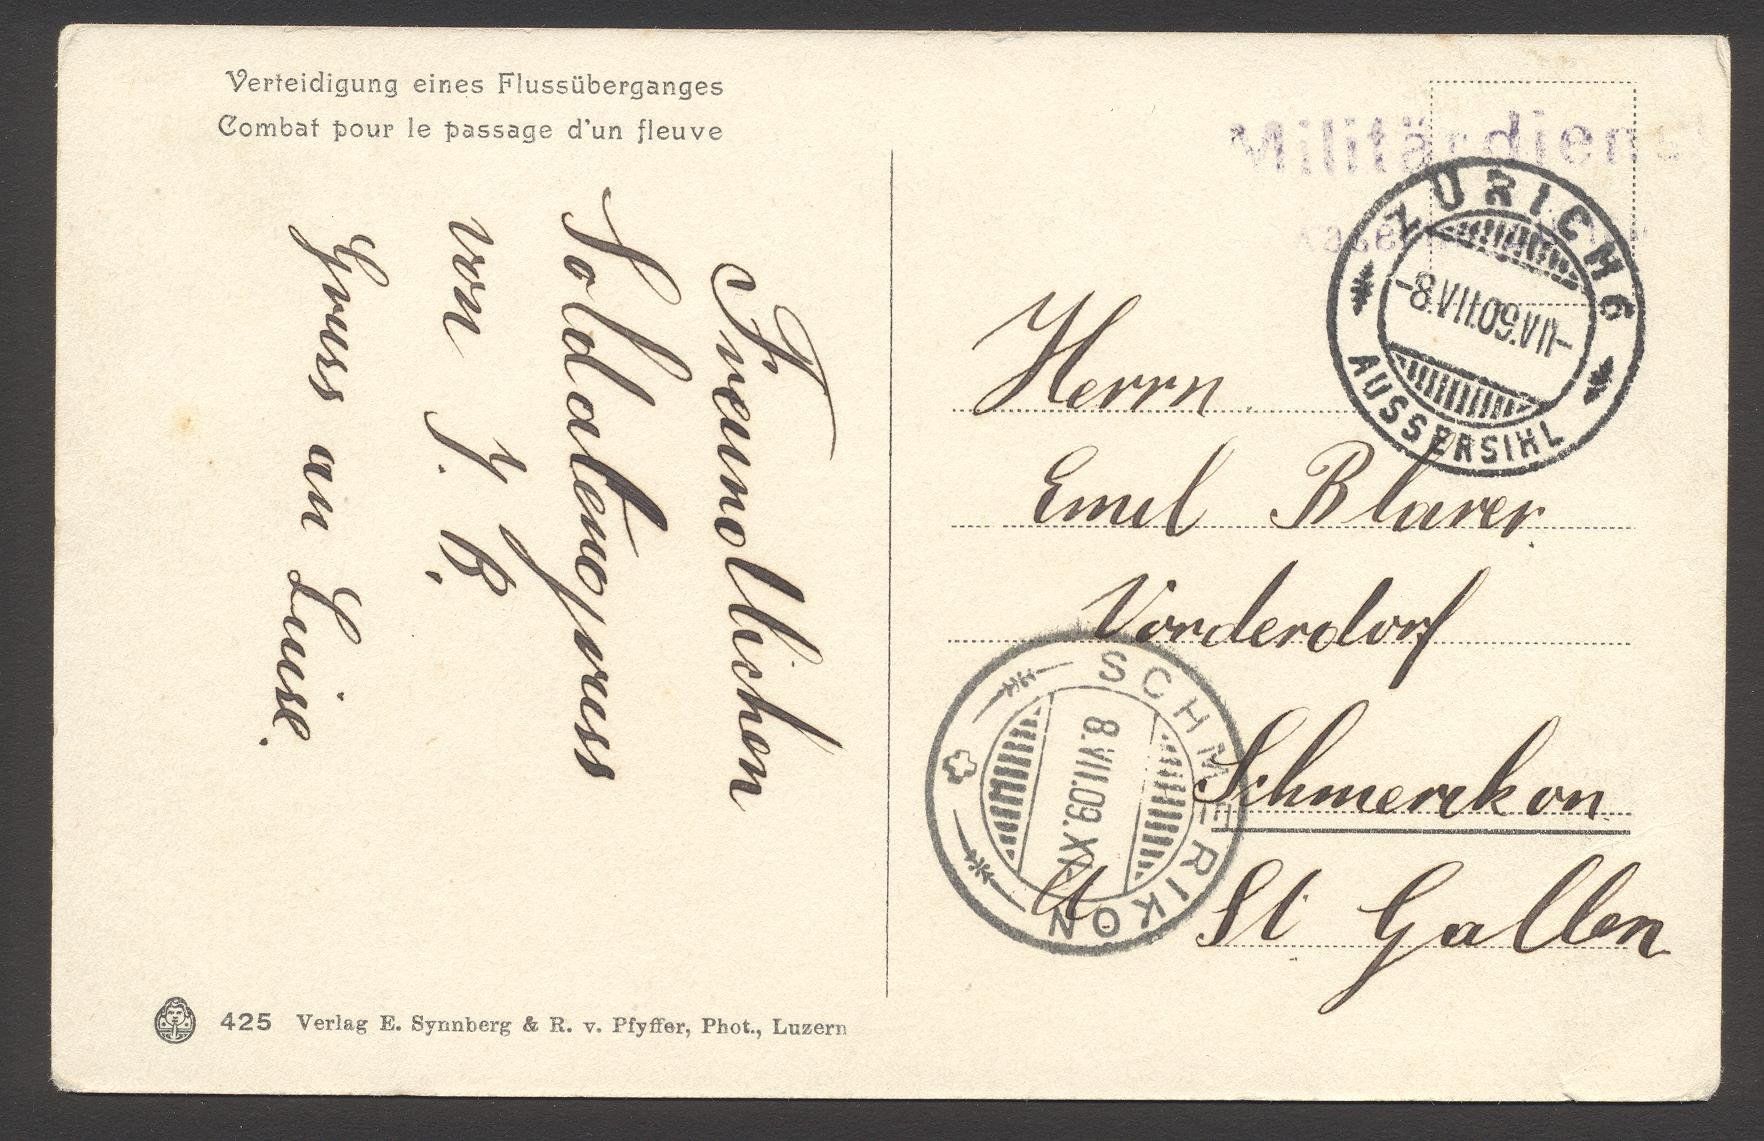 Verteidigung eines Flussüberganges
Combat pour le passage d'un fleuve
Freundlichen
Soldatengruss
von J. B.
Gruss an Luise.
425 Verlag E. Synnberg & R. v. Pfyffer, Phot., Luzern
Militärdienst
ZÜRICH 6
-8.VII.09.VII-
AUSSERSIHL
Herrn
Emil Blarer.
Vorderdorf
Schmerikon
St Gallen
SCHMERIKON
8.VII.09.XI